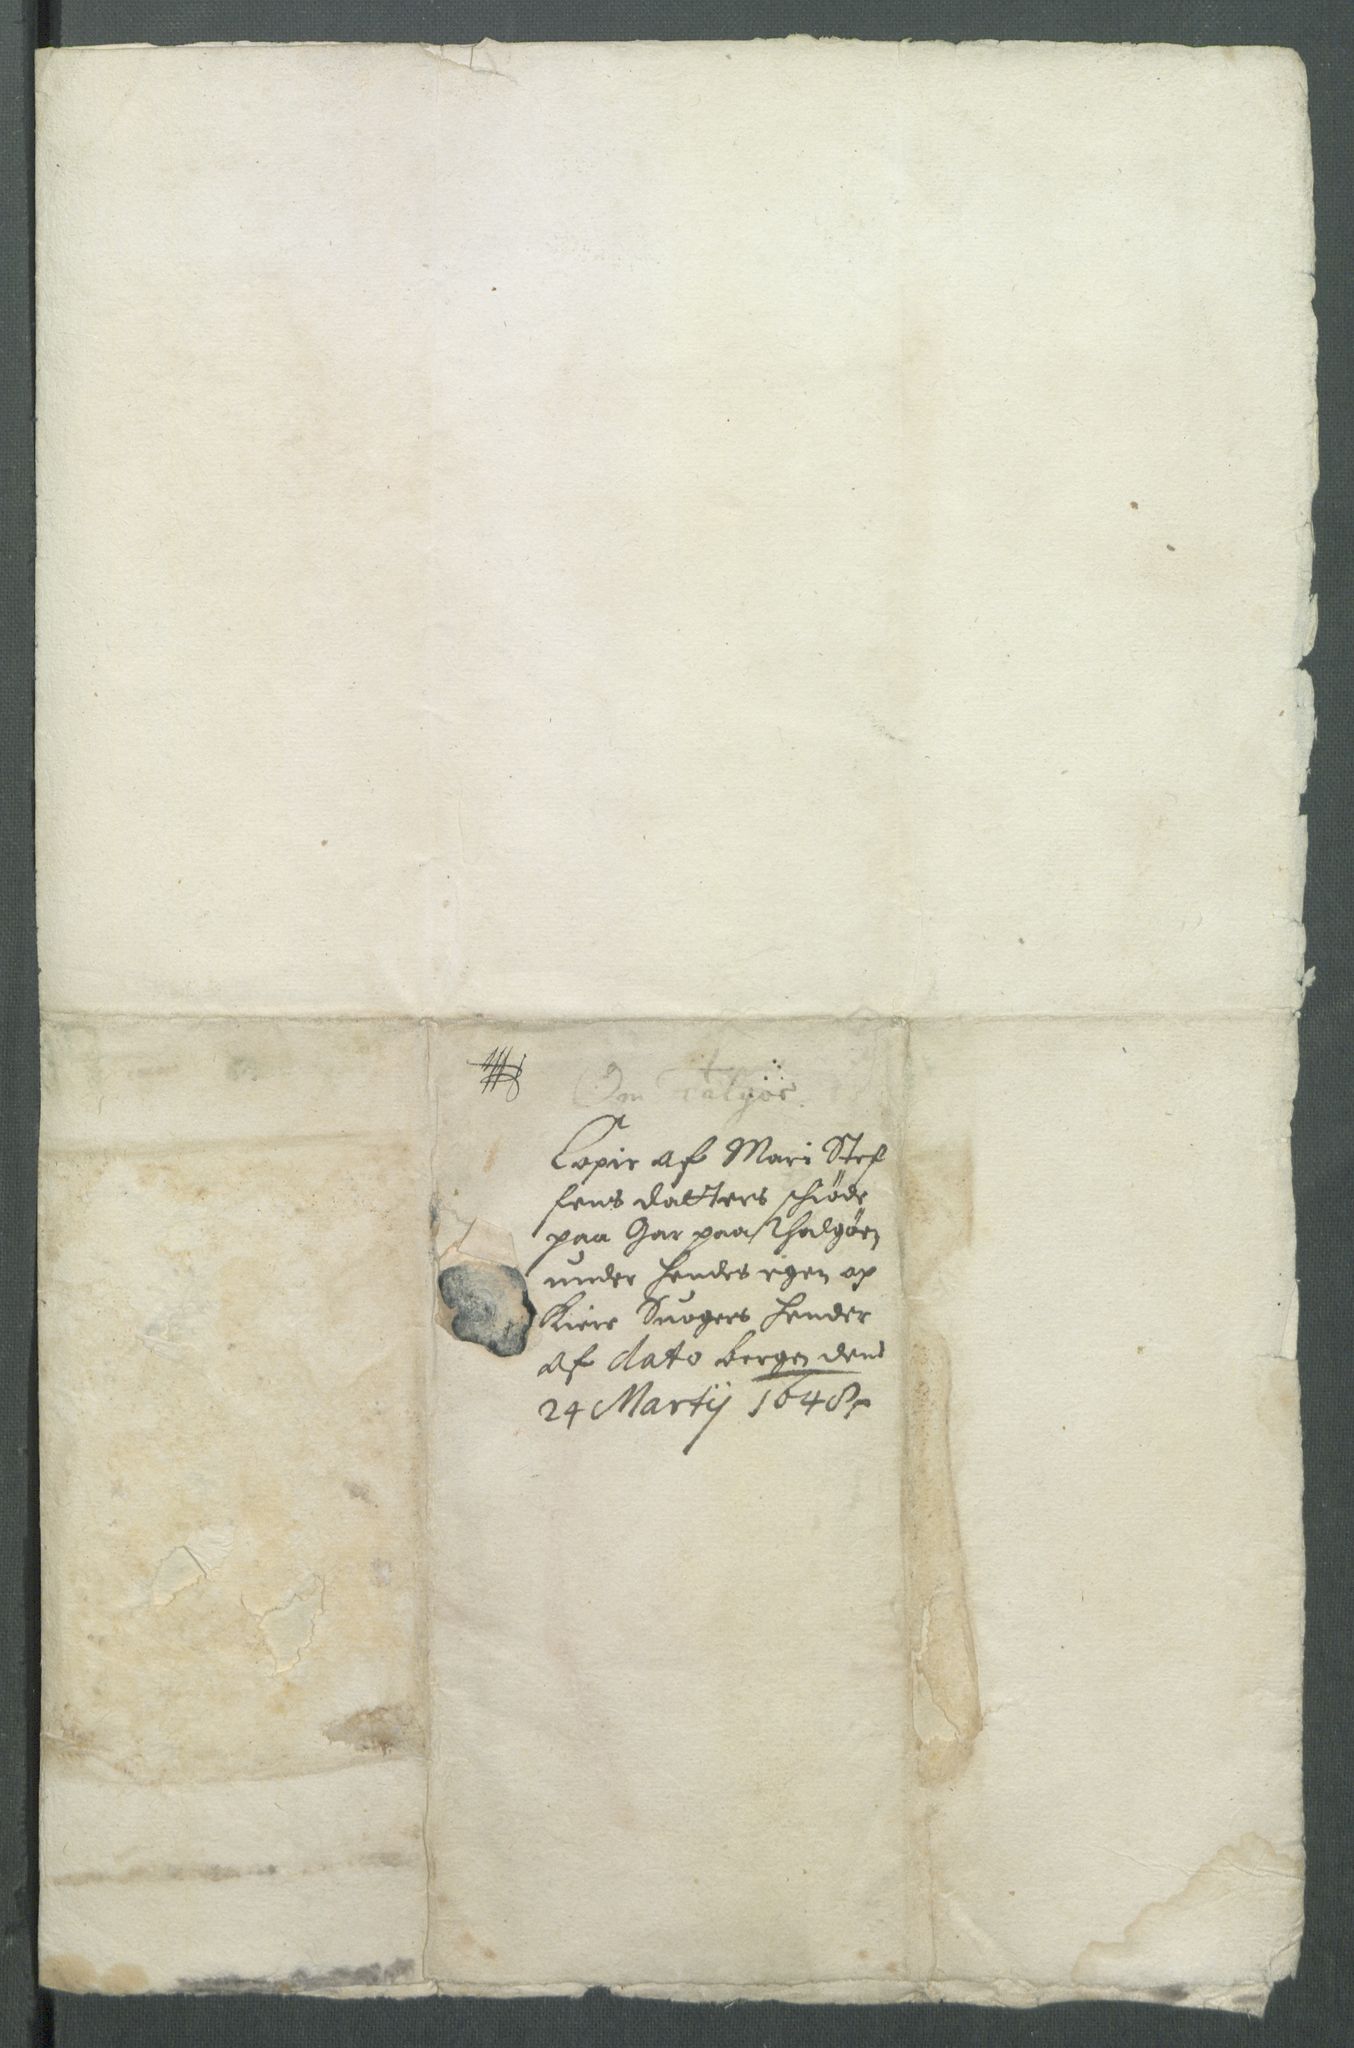 Om Talgöe
Copie af Mari Stef
fens datters schiöde
paa Gar paa Thalgöen
under hendes egen op
Kiere Suogers hender
af dato bergen dend
24 Martij 1648